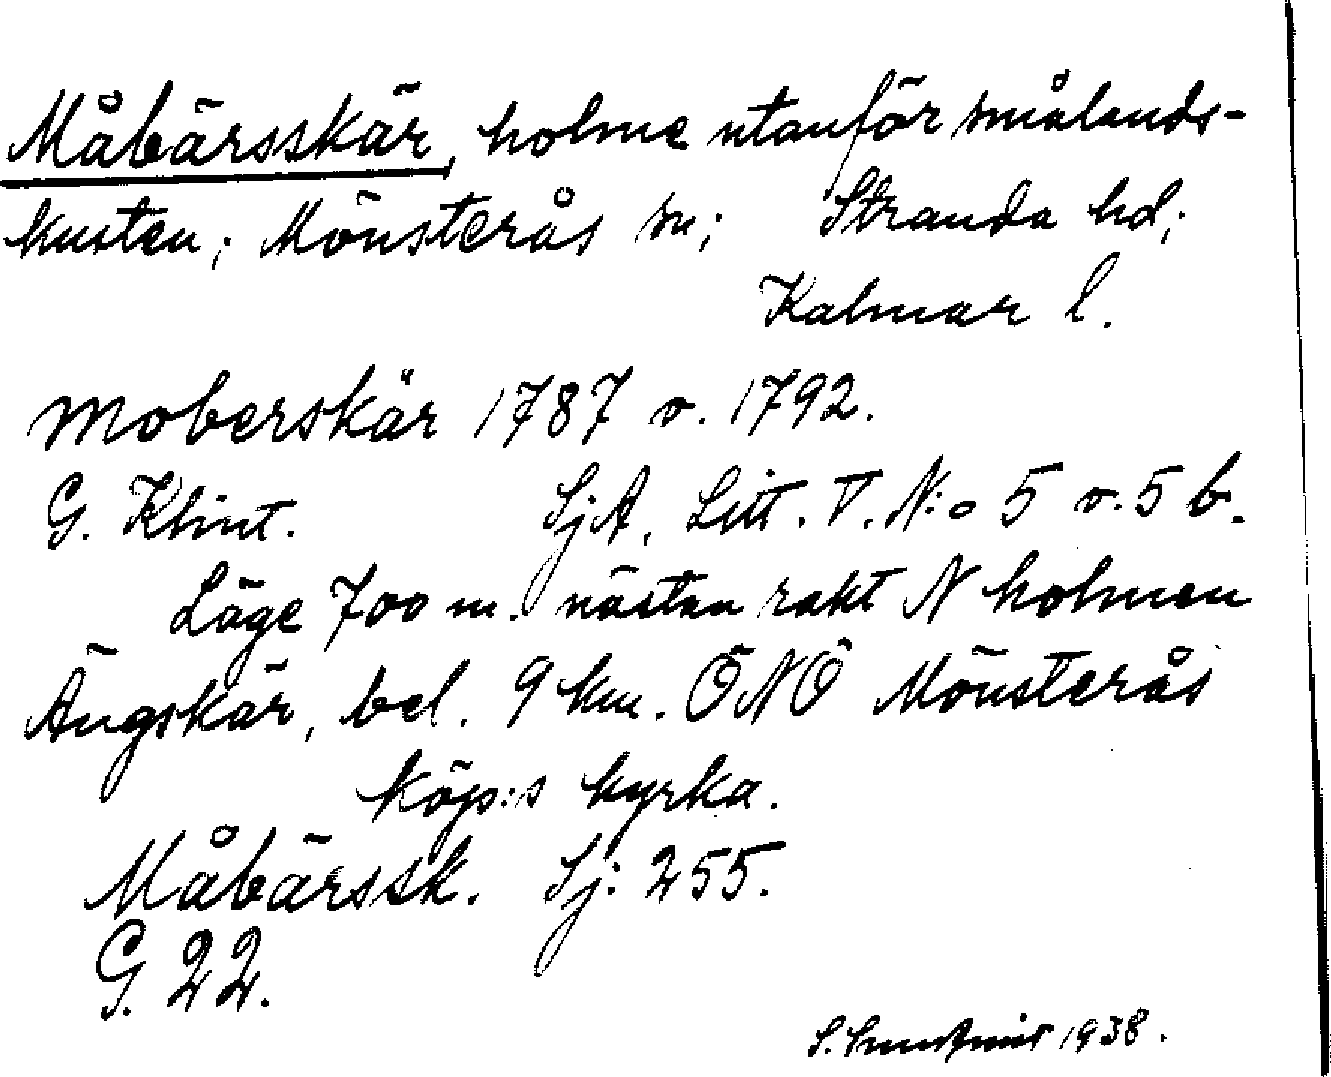 Måbärsskär, holme utanför smålands-
kusten; Mönsterås sn; Stranda hd;
Kalmar l.
Moberskär 1787 o. 1792.
G. Klint. SjA, Litt. V. N:o 5 o. 5 b.
Läge 700 m. nästan rakt N holmen
Ängskär, bel. 9 km. ÖNÖ Mönsterås
köp:s kyrka.
Måbärssk. Sj: 255.
G. 22.
S. 1938.